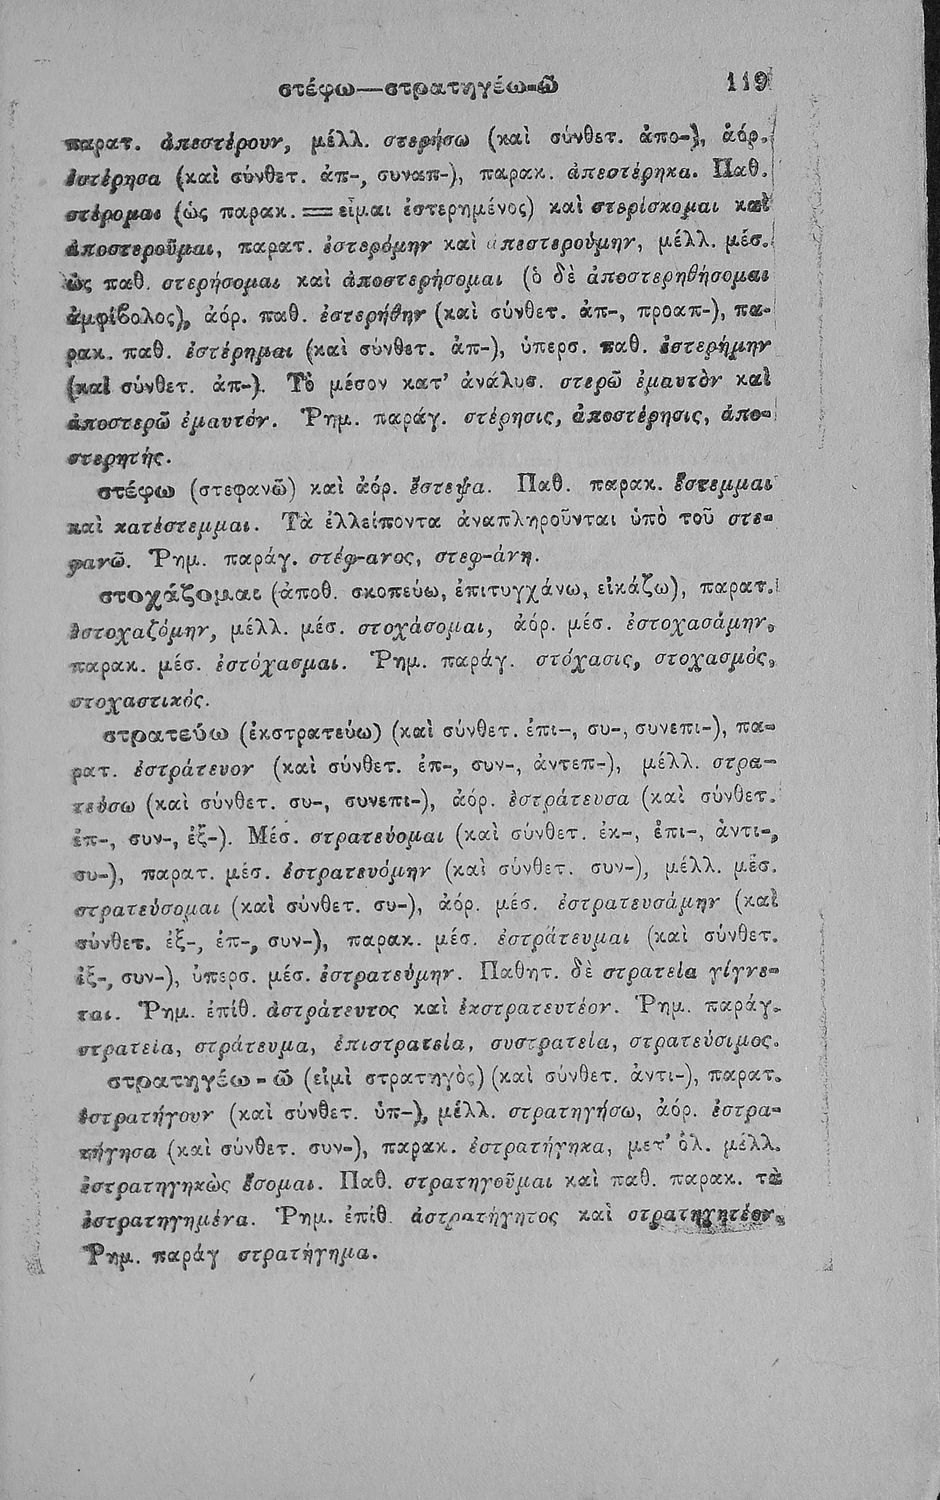 στέφω—στρατηγέω-ῶ 119
παρατ. ἀπεστέρουν, μέλλ. στερήσω (καὶ σύνθετ. ἀπο-), ἀόρ.
ἐστέρησα (καὶ σύνθετ. ἀπ-, συναπ-), παρακ. ἀπεστέρηκα. Παθ.
στέρομαι (ὡς παρακ. = εἶμαι ἐστερημένος) καὶ στερίσκομαι καὶ
ἀποστεροῦμαι, παρατ. ἐστερόμην καὶ ἀπεστερούμην, μέλλ. μέσ.
ὡς παθ. στερήσομαι καὶ ἀποστερήσομαι (ὁ δὲ ἀποστερηθήσομαι
ἀμφίβολος), ἀόρ. παθ. ἐστερήθην (καὶ σύνθετ. ἀπ-, προαπ-), πα-
ρακ. παθ. ἐστέρημαι (καὶ σύνθετ. ἀπ-), ὑπερσ. παθ. ἐστερήμην
(καὶ σύνθετ. ἀπ-). Τὸ μέσον κατ' ἀνάλυσ. στερῶ ἐμαυτὸν καὶ
ἀποστερῶ ἐμαυτόν. Ῥημ. παράγ. στέρησις, ἀποστέρησις, ἀπο-
στερητής.
στέφω (στεφανῶ) καὶ ἀόρ. ἔστεψα. Παθ. παρακ. ἔστεμμαι
καὶ κατέστεμμαι. Τὰ ἐλλείποντα ἀναπληροῦνται ὑπὸ τοῦ στε-
φανῶ. Ῥημ. παράγ. στέφ-ανος, στεφ-άνη.
στοχάζομαι (ἀποθ. σκοπεύω, ἐπιτυγχάνω, εἰκάζω), παρατ.
ἐστοχαζόμην, μέλλ. μέσ. στοχάσομαι, ἀόρ. μέσ. ἐστοχασάμην,
παρακ. μέσ. ἐστόχασμαι. Ῥημ. παράγ. στόχασις, στοχασμός,
στοχαστικός.
στρατεύω (ἐκστρατεύω) (καὶ σύνθετ. ἐπι-, συ-, συνεπι-), πα-
ρατ. ἐστράτευον (καὶ σύνθετ. ἐπ-, συν-, ἀντεπ-), μέλλ. στρα-
τεύσω (καὶ σύνθετ. συ-, συνεπι-), ἀόρ. ἐστράτευσα (καὶ σύνθετ.
ἐπ-, συν-, ἐξ-). Μέσ. στρατεύομαι (καὶ σύνθετ. ἐκ-, ἐπι-, ἀντι-,
συ-), παρατ. μέσ. ἐστρατευόμην (καὶ σύνθετ. συν-), μέλλ. μέσ.
στρατεύσομαι (καὶ σύνθετ. συ-), ἀόρ. μέσ. ἐστρατευσάμην (καὶ
σύνθετ. ἐξ-, ἐπ-, συν-), παρακ. μέσ. ἐστράτευμαι (καὶ σύνθετ.
ἐξ-, συν-), ὑπερσ. μέσ. ἐστρατεύμην. Παθητ. δὲ στρατεία γίγνε-
ται. Ῥημ. ἐπίθ. ἀστράτευτος καὶ ἐκστρατευτέον. Ῥημ. παράγ.
στρατεία, στράτευμα, ἐπιστρατεία, συστρατεία, στρατεύσιμος.
στρατηγέω - ῶ (εἰμὶ στρατηγὸς) (καὶ σύνθετ. ἀντι-), παρατ.
ἐστρατήγουν (καὶ σύνθετ. ὑπ-), μέλλ. στρατηγήσω, ἀόρ. ἐστρα-
τήγησα (καὶ σύνθετ. συν-), παρακ. ἐστρατήγηκα, μετ' ὀλ. μέλλ.
ἐστρατηγηκὼς ἔσομαι. Παθ. στρατηγοῦμαι καὶ παθ. παρακ. τὰ
ἐστρατηγημένα. Ῥημ. ἐπίθ. ἀστρατήγητος καὶ στρατηγητέον.
Ῥημ. παράγ στρατήγημα.